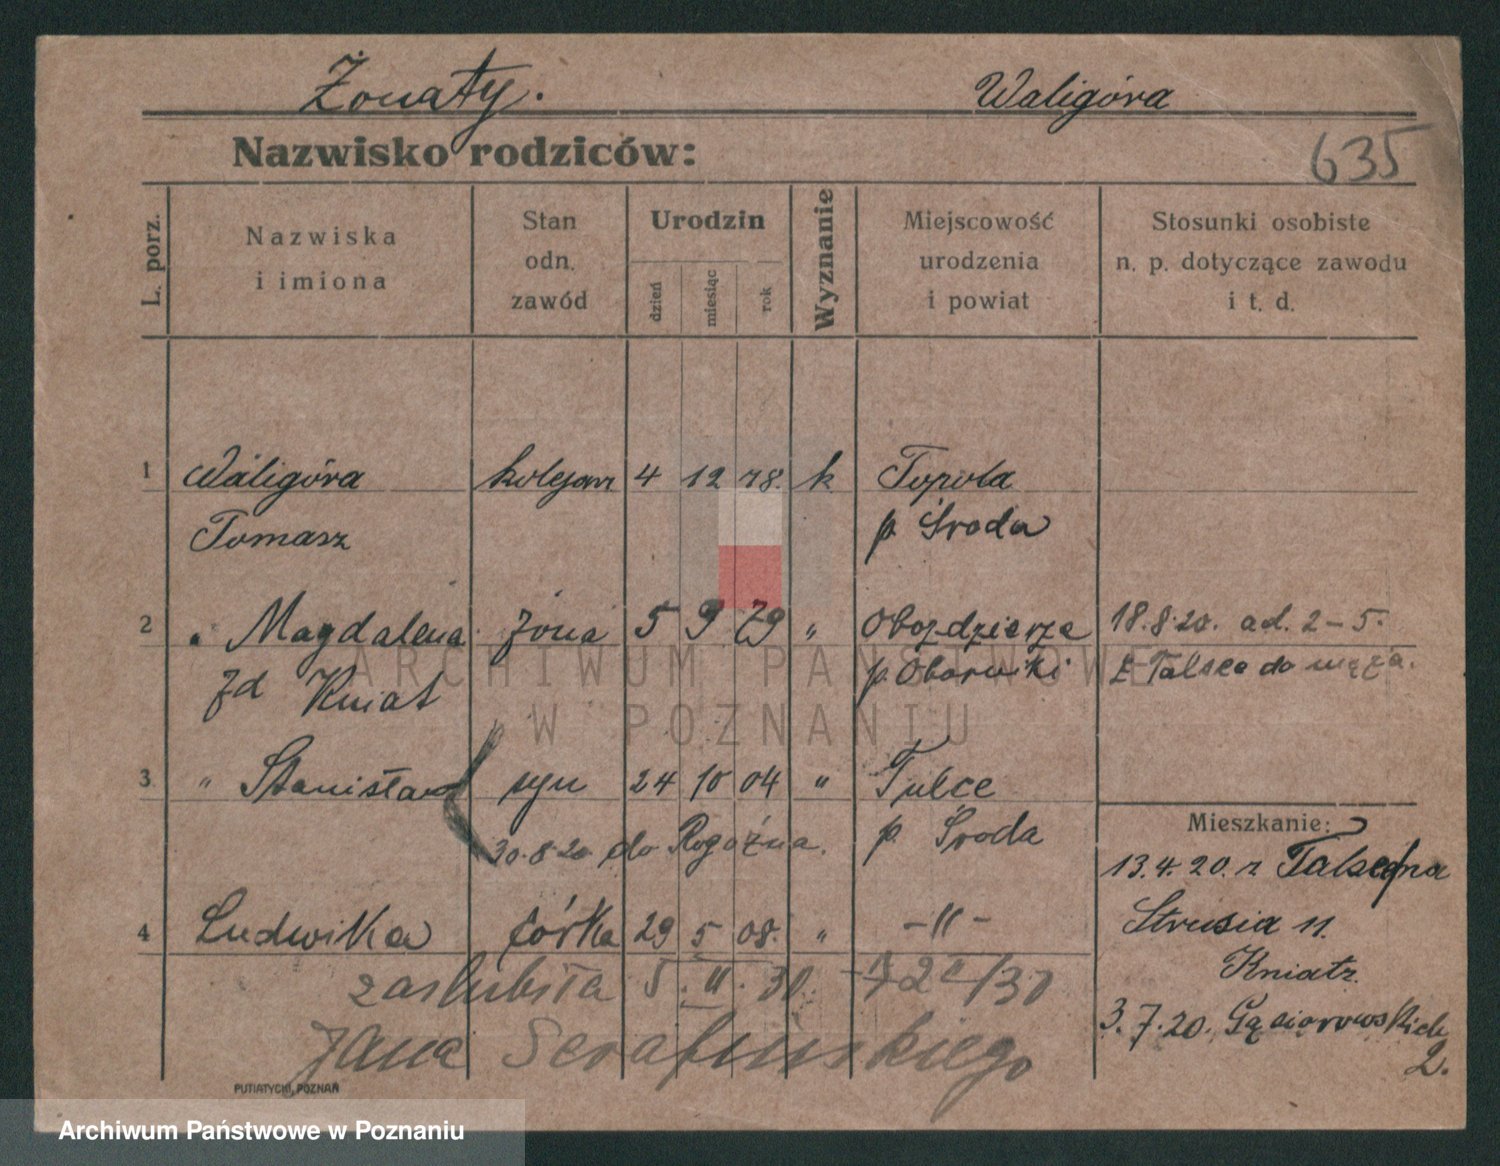 Żonaty. Waligóra
Nazwisko rodziców: 635
L. porz. Nazwiska i imiona Stan odn. zawód Urodzin dzień miesiąc rok Wyznanie Miejscowość urodzenia i powiat Stosunki osobiste n. p. dotyczące zawodu i t. d.
1 Waligóra kolejarz 4 12 78. k Topola
Tomasz p. Środa
2 " Magdalena żona 5 9 79 " Obojdzierze 18.8.20. ad. 2-5.
zd Kniat p. Oborniki z Talsca do męża.
ARCHIWUM PAŃSTWOWE
W POZNANIU
3 " Stanisław syn 24 10 04 " Tulce
Mieszkanie:
30.8.20 do Rogoźna. p. Środa
13.4.20. z
4 Ludwika córka 29 5 08. " -"-
Strusia 11.
Kniatz.
zaślubiła 5. 11. 30.
3.7.20. Gąsiorowskich
2.
Jana Serafińskiego
PUTIATYCKI, POZNAŃ
Archiwum Państwowe w Poznaniu